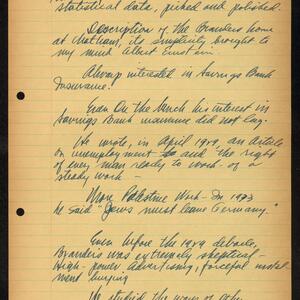 statistical data, picked and polished.
Description of the Brandeis home
at Chatham, its simplicity brought to
my mind Albert Einstein.
Always interested in Savings Bank
Insurance!
Even On the bench his interest in
Savings Bank insurance did not lag.
He wrote, in April 1929, an article
on unemployment and the right
of every man ready to work - of a
steady work -
More Palestine Work - In 1933
He said "Jews must leave Germany."
Even before the 1929 debacle,
Brandeis was extremely skeptical
High-power Advertising, forceful instal
ment buying
He studied the ways of